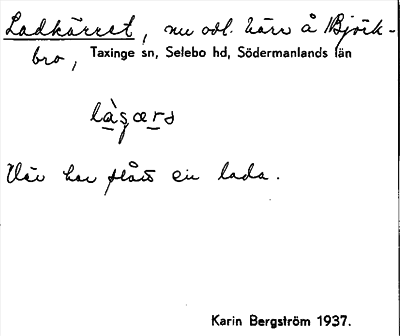 Ladkärret, nu odl. kärr å Björk-
bro, Taxinge sn, Selebo hd, Södermanlands län
Där har stått en lada.
Karin Bergström 1937.